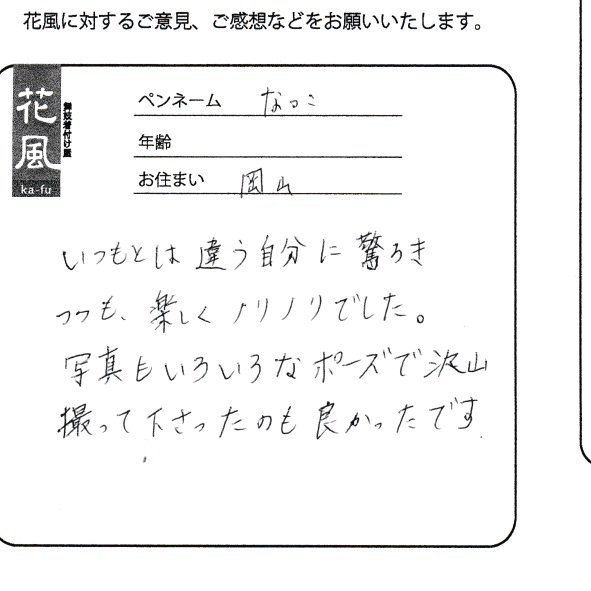 花風に対するご意見、ご感想などをお願いいたします。
花風
舞妓着付け屋
ka-fu
ペンネーム なっこ
年齢
お住まい 岡山
いつもとは違う自分に驚ろき
つつも、楽しくノリノリでした。
写真もいろいろなポーズで沢山
撮って下さったのも良かったです